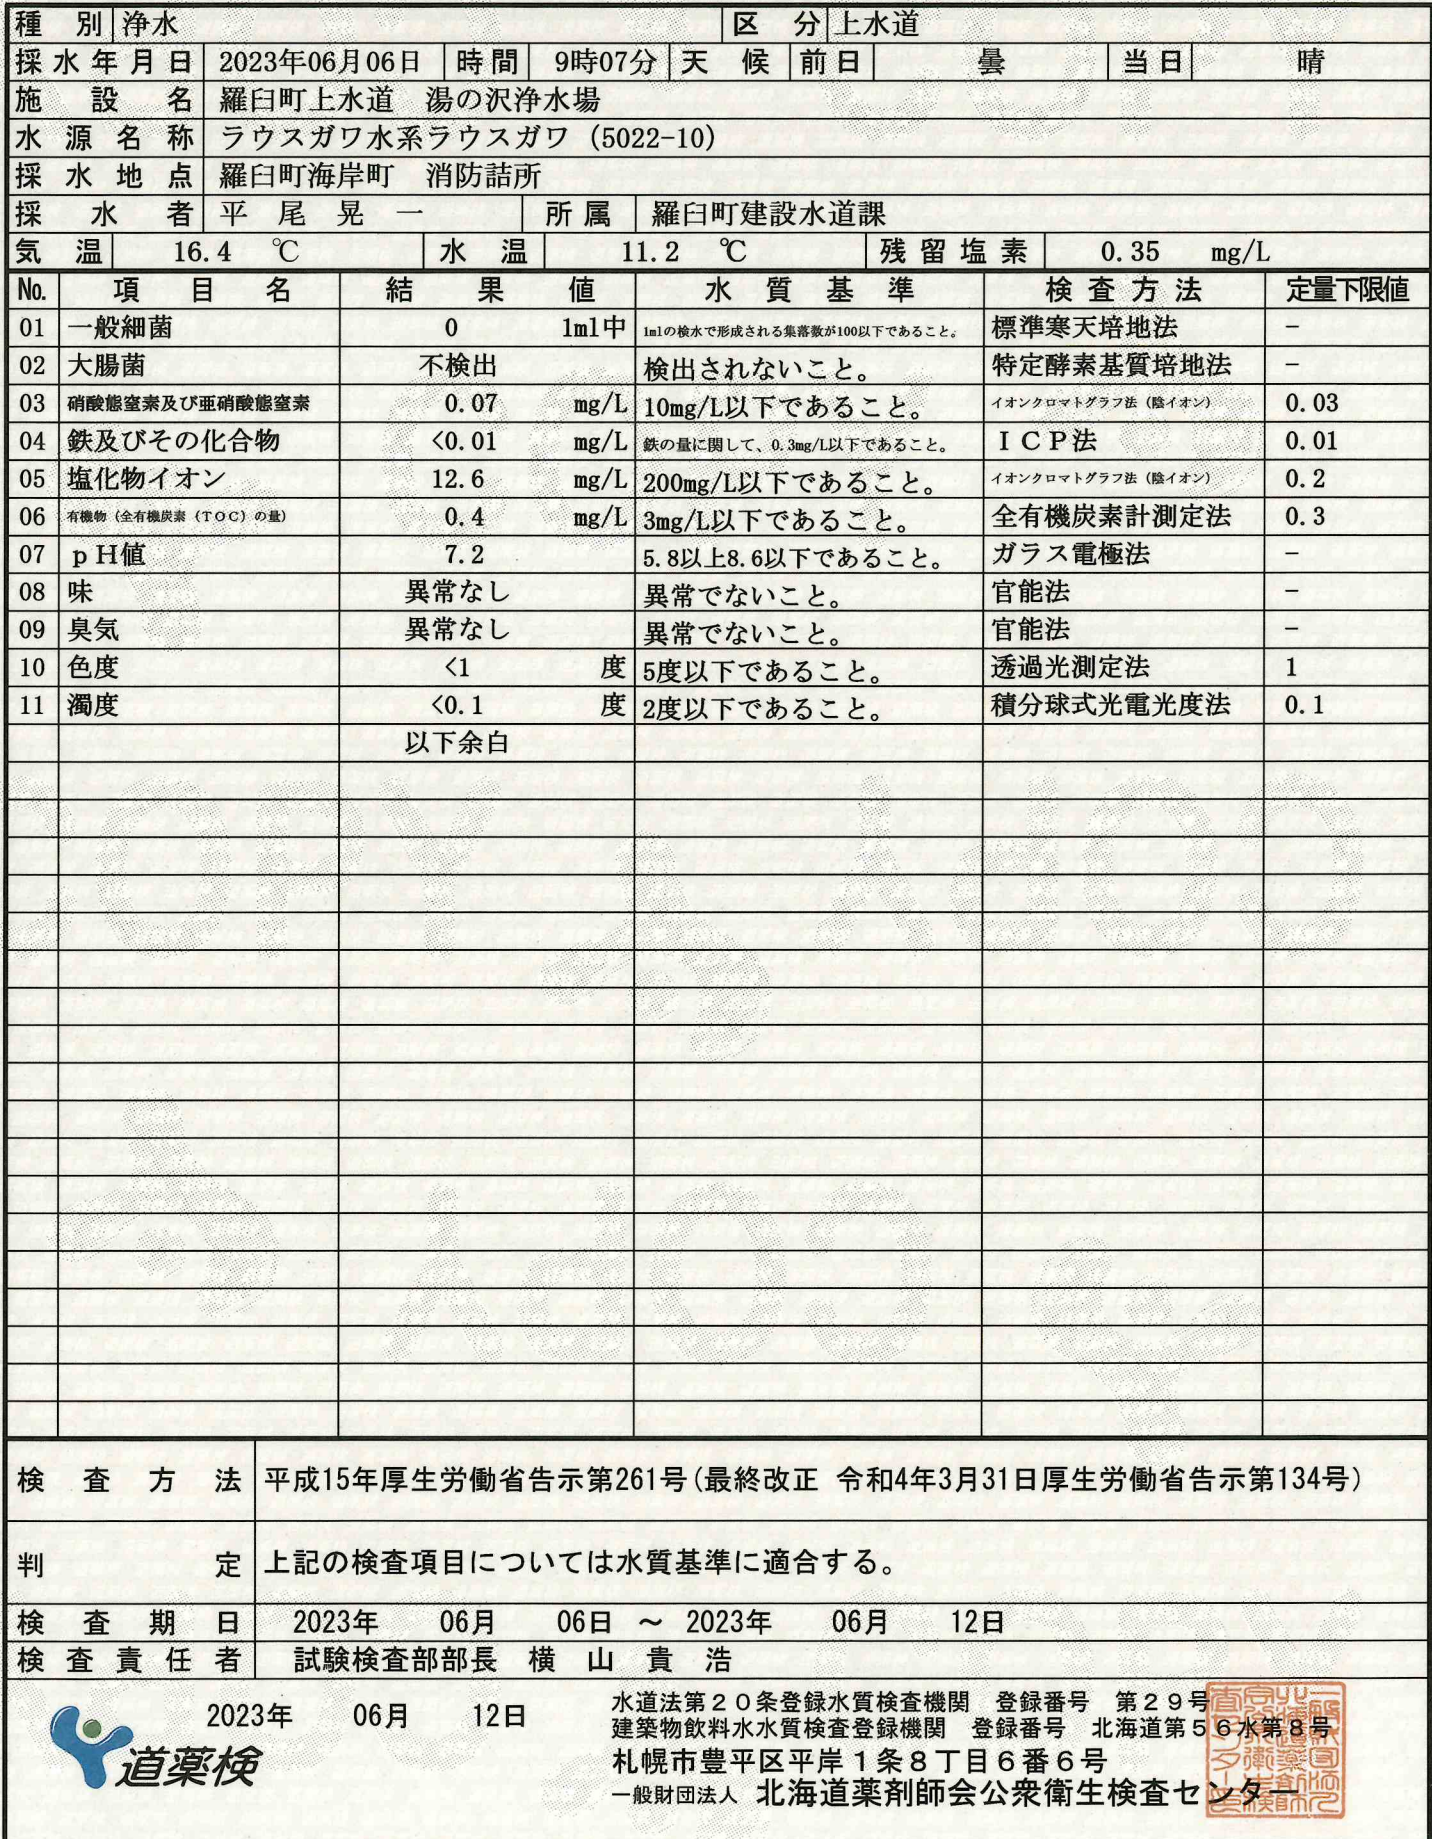 種 別 浄水 区 分 上水道
採水年月日 2023年06月06日 時間 9時07分 天 候 前日 曇 当日 晴
施 設 名 羅臼町上水道 湯の沢浄水場
水源名称 ラウスガワ水系ラウスガワ (5022-10)
採水地点 羅臼町海岸町 消防詰所
採 水 者 平 尾 晃 一 所属 羅臼町建設水道課
気 温 16.4 ℃ 水 温 11.2 ℃ 残留塩素 0.35 mg/L
No. 項 目 名 結 果 値 水 質 基 準 検査方法 定量下限値
01 一般細菌 0 1ml中 1mlの検水で形成される集落数が100以下であること。 標準寒天培地法 −
02 大腸菌 不検出 検出されないこと。 特定酵素基質培地法 −
03 硝酸態窒素及び亜硝酸態窒素 0.07 mg/L 10mg/L以下であること。 イオンクロマトグラフ法(陰イオン) 0.03
04 鉄及びその化合物 <0.01 mg/L 鉄の量に関して、0.3mg/L以下であること。 ICP法 0.01
05 塩化物イオン 12.6 mg/L 200mg/L以下であること。 イオンクロマトグラフ法(陰イオン) 0.2
06 有機物(全有機炭素(TOC)の量) 0.4 mg/L 3mg/L以下であること。 全有機炭素計測定法 0.3
07 pH値 7.2 5.8以上8.6以下であること。 ガラス電極法 −
08 味 異常なし 異常でないこと。 官能法 −
09 臭気 異常なし 異常でないこと。 官能法 −
10 色度 <1 度 5度以下であること。 透過光測定法 1
11 濁度 <0.1 度 2度以下であること。 積分球式光電光度法 0.1
以下余白
検 査 方 法 平成15年厚生労働省告示第261号(最終改正 令和4年3月31日厚生労働省告示第134号)
判 定 上記の検査項目については水質基準に適合する。
検 査 期 日 2023年 06月 06日 ～ 2023年 06月 12日
検査責任者 試験検査部部長 横 山 貴 浩
2023年 06月 12日
道薬検
水道法第20条登録水質検査機関 登録番号 第29号
建築物飲料水水質検査登録機関 登録番号 北海道第56水第8号
札幌市豊平区平岸1条8丁目6番6号
一般財団法人 北海道薬剤師会公衆衛生検査センター